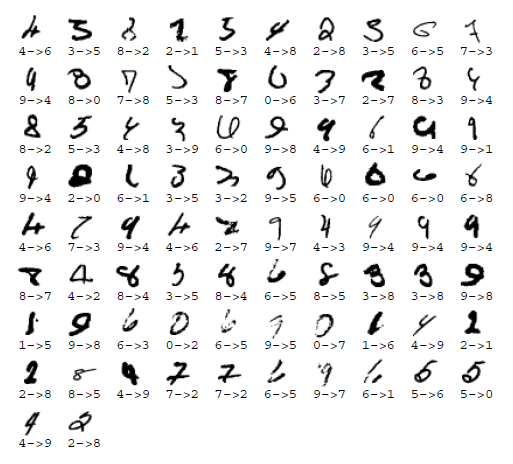 4->6 3->5 8->2 2->1 5->3 4->8 2->8 3->5 6->5 7->3
9->4 8->0 7->8 5->3 8->7 0->6 3->7 2->7 8->3 9->4
8->2 5->3 4->8 3->9 6->0 9->8 4->9 6->1 9->4 9->1
9->4 2->0 6->1 3->5 3->2 9->5 6->0 6->0 6->0 6->8
4->6 7->3 9->4 4->6 2->7 9->7 4->3 9->4 9->4 9->4
8->7 4->2 8->4 3->5 8->4 6->5 8->5 3->8 3->8 9->8
1->5 9->8 6->3 0->2 6->5 9->5 0->7 1->6 4->9 2->1
2->8 8->5 4->9 7->2 7->2 6->5 9->7 6->1 5->6 5->0
4->9 2->8